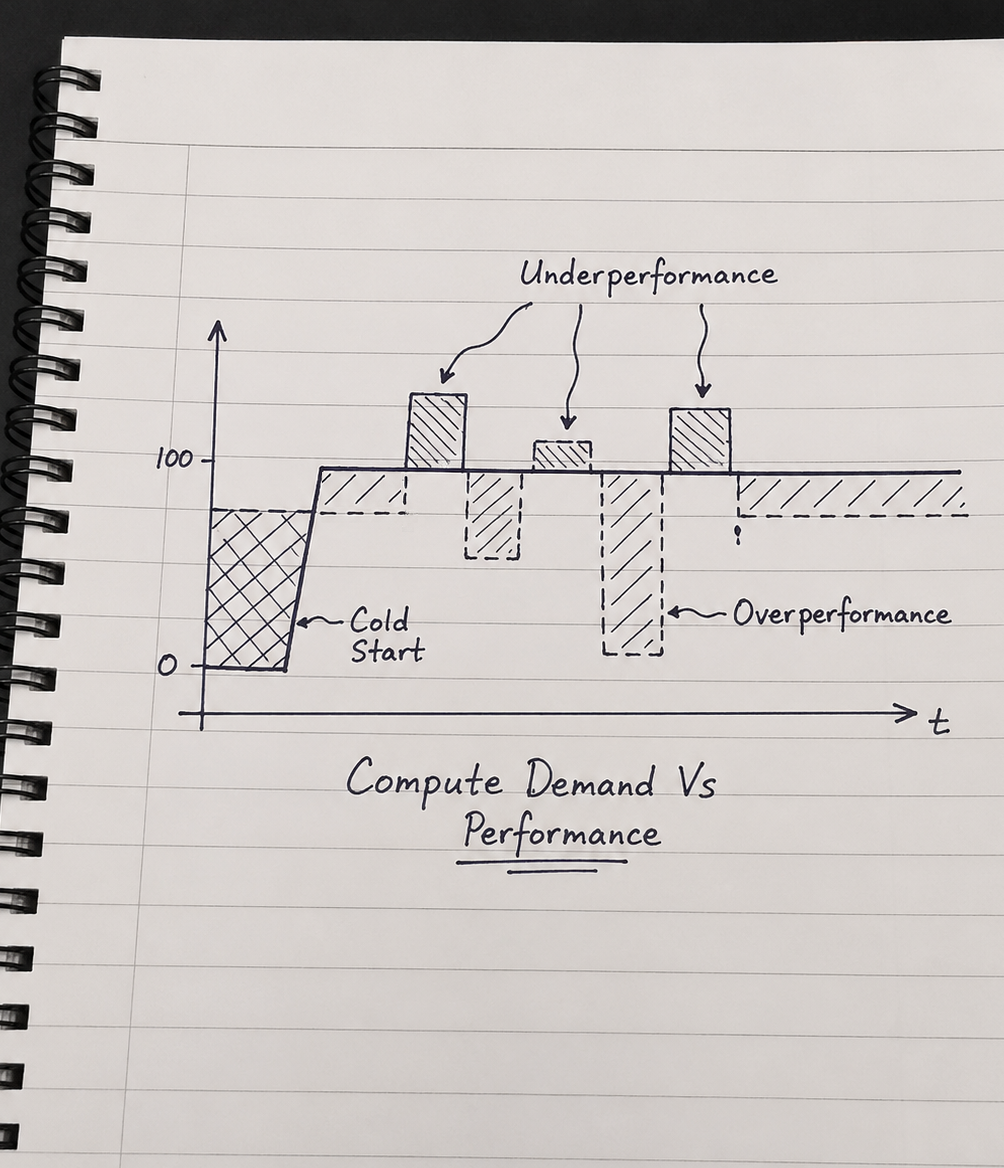 Underperformance
100
Overperformance
Cold
Start
0
t
Compute Demand Vs
Performance